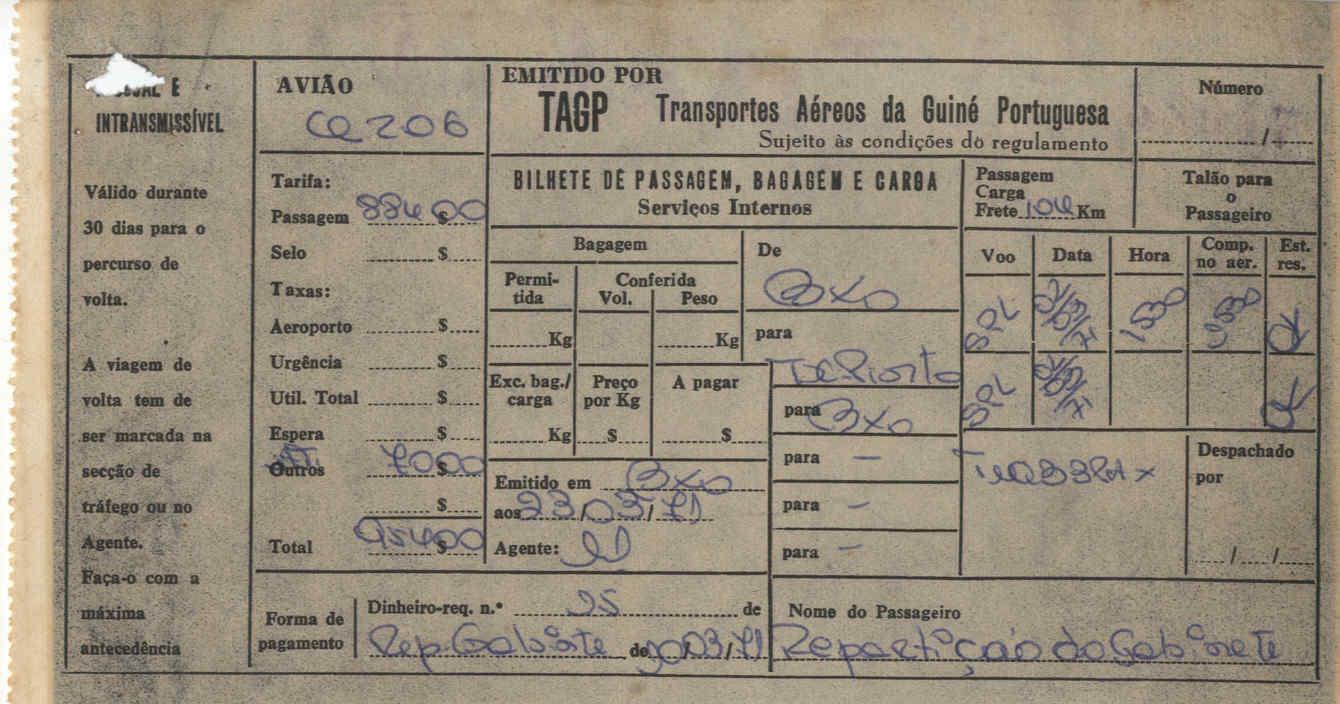 E
INTRANSMISSÍVEL
Válido durante
30 dias para o
percurso de
volta.
A viagem de
volta tem de
ser marcada na
secção de
tráfego ou no
Agente.
Faça-o com a
máxima
antecedência
AVIÃO
CQ206
Tarifa:
Passagem 884$00
Selo $
Taxas:
Aeroporto $
Urgência $
Util. Total $
Espera $
Outros 70$00
$
Total 954$00
EMITIDO POR
TAGP Transportes Aéreos da Guiné Portuguesa
Sujeito às condições do regulamento
Número
/
BILHETE DE PASSAGEM, BAGAGEM E CARGA
Serviços Internos
Passagem
Carga
Frete 104 Km
Talão para
o
Passageiro
Bagagem
Permi-
tida
Conferida
Vol. Peso
Kg Kg
Exc. bag./
carga
Preço
por Kg
A pagar
Kg $ $
Emitido em BXO
aos 23/03/71
Agente:
De
BXO
para
para BXO
para —
para —
para —
Voo Data Hora Comp.
no aer. Est.
res.
SPL 1530 OK
SPL OK
Despachado
por
/ /
Forma de
pagamento
Dinheiro-req. n.º 25 de
Rep. Gabinete de /03/71
Nome do Passageiro
Repartição do Gabinete